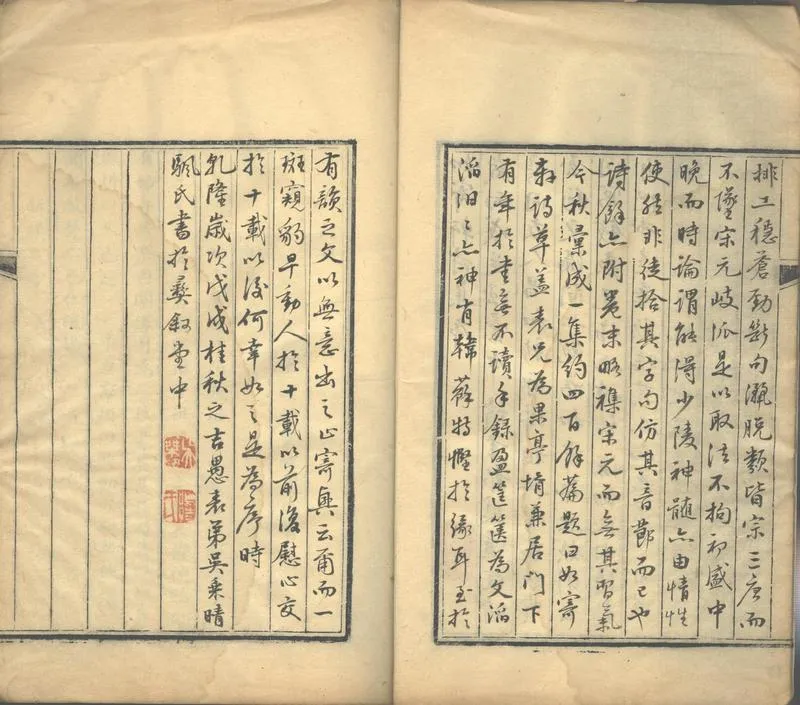 排工穩蒼勁斷句灑脫類皆宗三唐而
不墜宋元岐派是以取法不拘初盛中
晚而時論謂能得少陵神髓亦由情性
使然非徒拾其字句仿其音節而已也
詩餘亦附卷末略襍宋元而無其習氣
今秋彙成一集約四百餘篇題曰如寄
軒詩草蓋表兄為果亭壻兼居門下
有年於書無不讀手錄盈筐篋為文滔
滔汩汩亦神肖韓蘇特慳於緣耳至於
有韻之文以無意出之止寄興云爾而一
斑窺豹早動人於十載以前復慰心交
於十載以後何幸如之是為序時
乾隆歲次戊戌桂秋之吉愚表弟吳秉晴
颿氏書於彝敘堂中